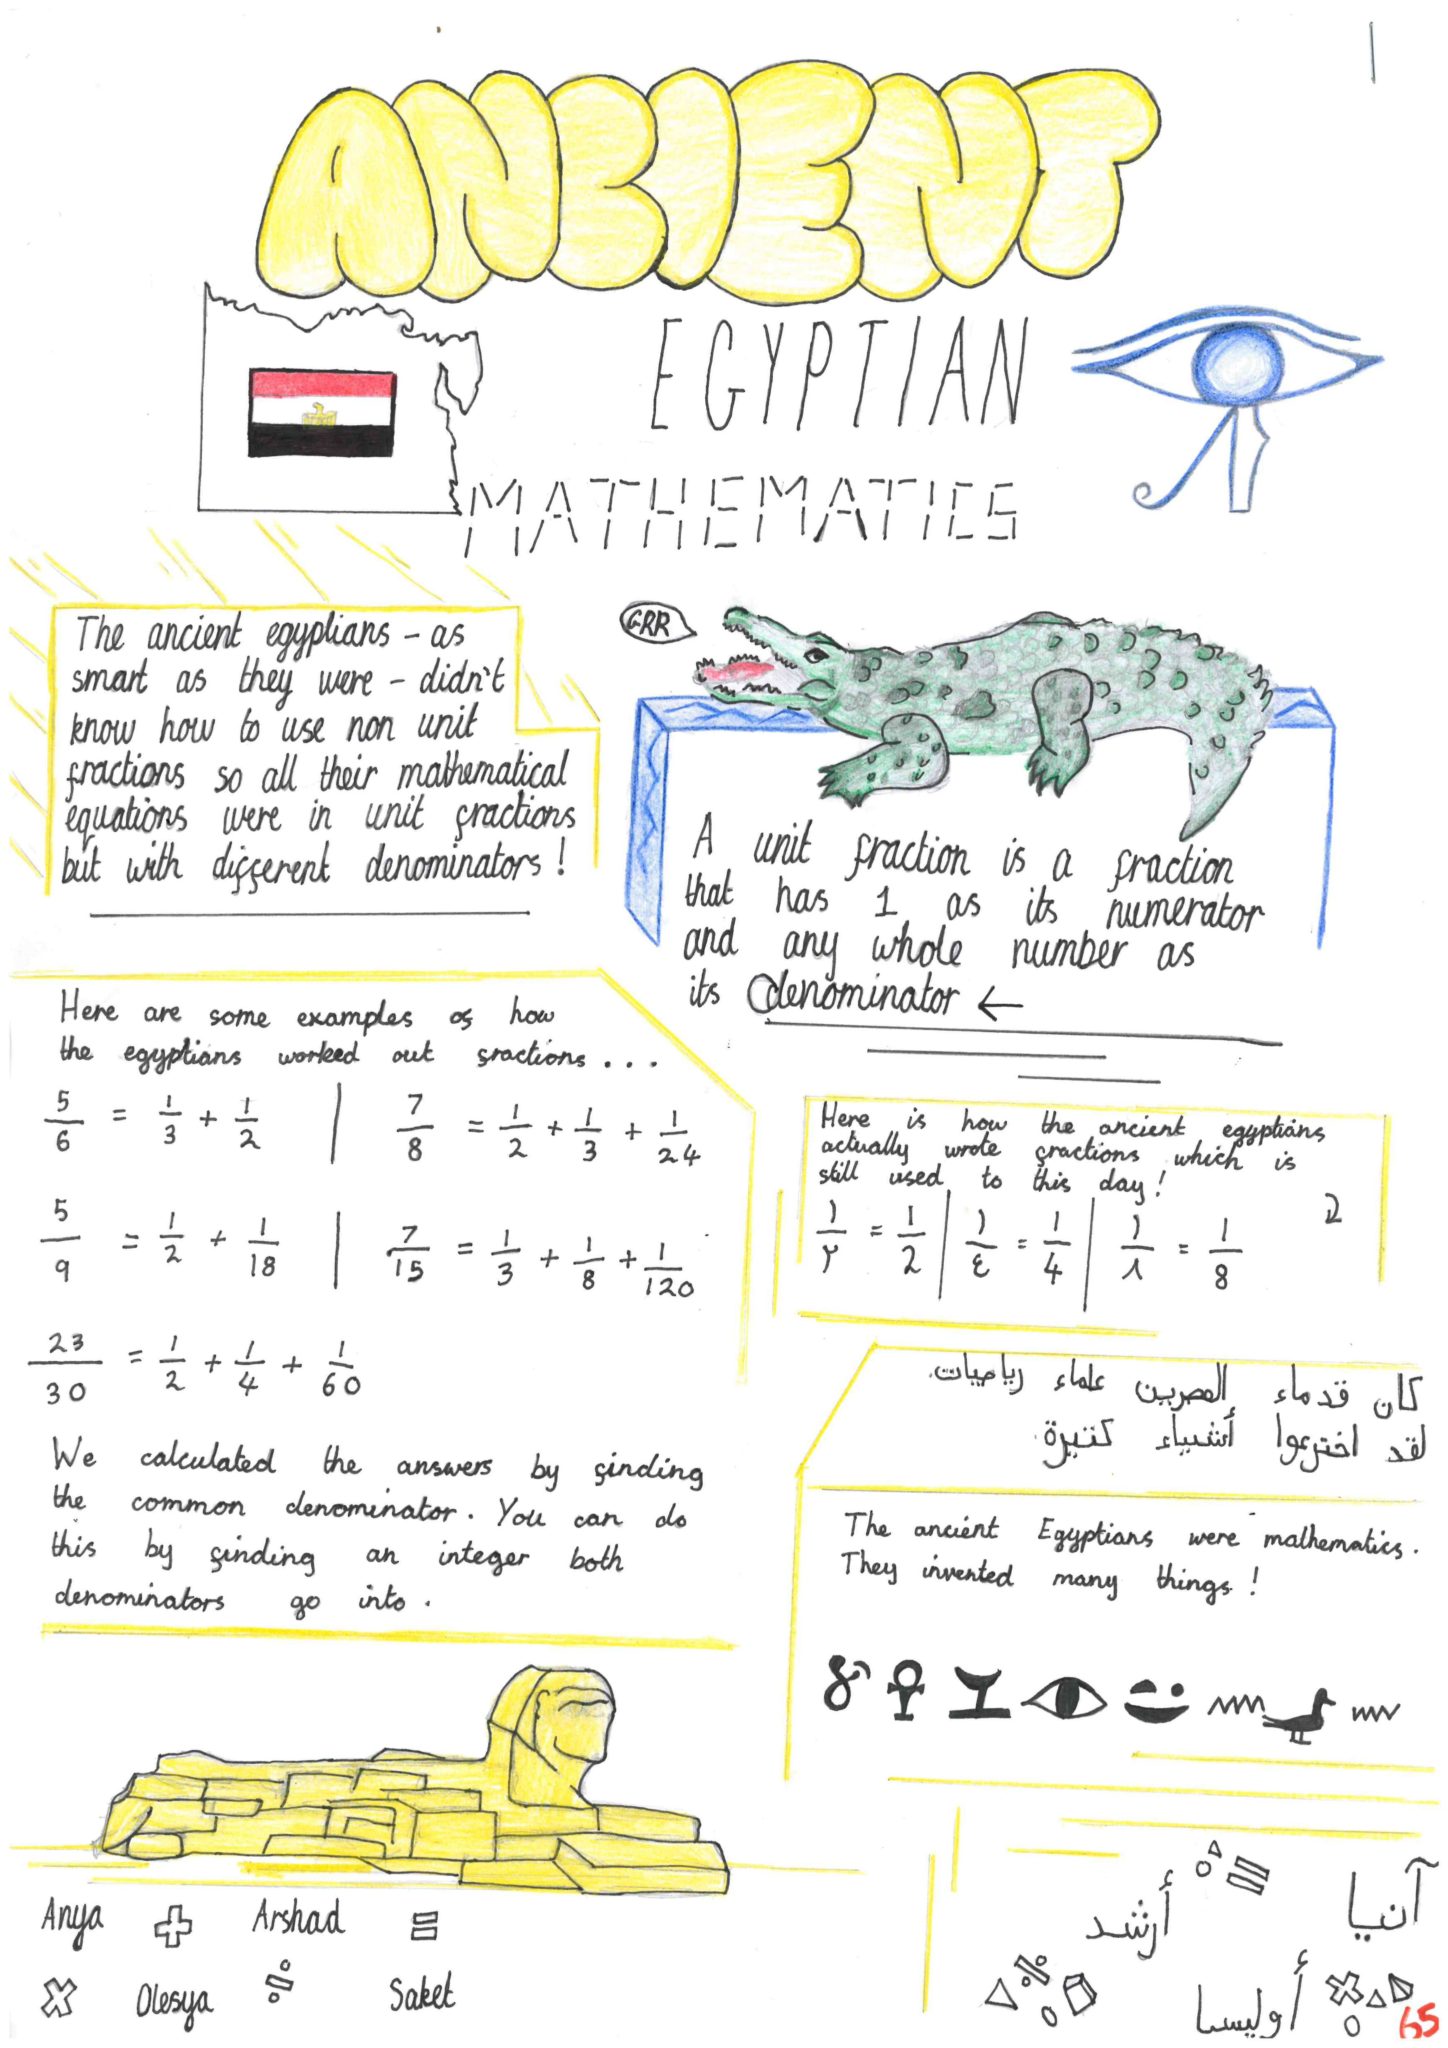 ANCIENT
EGYPTIAN
MATHEMATICS
The ancient egyptians - as
smart as they were - didn't
know how to use non unit
fractions so all their mathematical
equations were in unit fractions
but with different denominators!
GRR
A unit fraction is a fraction
that has 1 as its numerator
and any whole number as
its denominator ←
Here are some examples of how
the egyptians worked out fractions...
5/6 = 1/3 + 1/2 | 7/8 = 1/2 + 1/3 + 1/24
5/9 = 1/2 + 1/18 | 7/15 = 1/3 + 1/8 + 1/120
23/30 = 1/2 + 1/4 + 1/60
We calculated the answers by finding
the common denominator. You can do
this by finding an integer both
denominators go into.
Here is how the ancient egyptians
actually wrote fractions which is
still used to this day!
١/٢ = 1/2 | ١/٤ = 1/4 | ١/٨ = 1/8
2
كان قدماء المصرين علماء رياضيات.
لقد اخترعوا أشياء كثيرة.
The ancient Egyptians were mathematics.
They invented many things!
Anya + Arshad =
× Olesya ÷ Saket
آنيا
أرشد
أوليسا
65